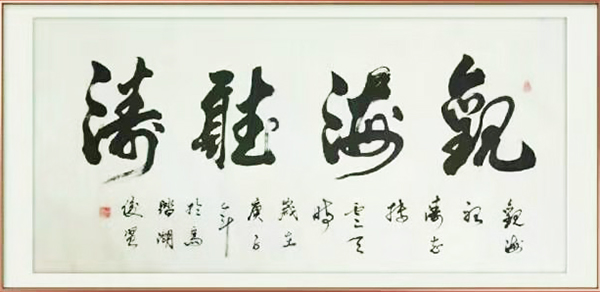 觀海聽濤
觀海
聽
濤志
接
雲天
時
歲在
庚子
年
於馬
踏湖